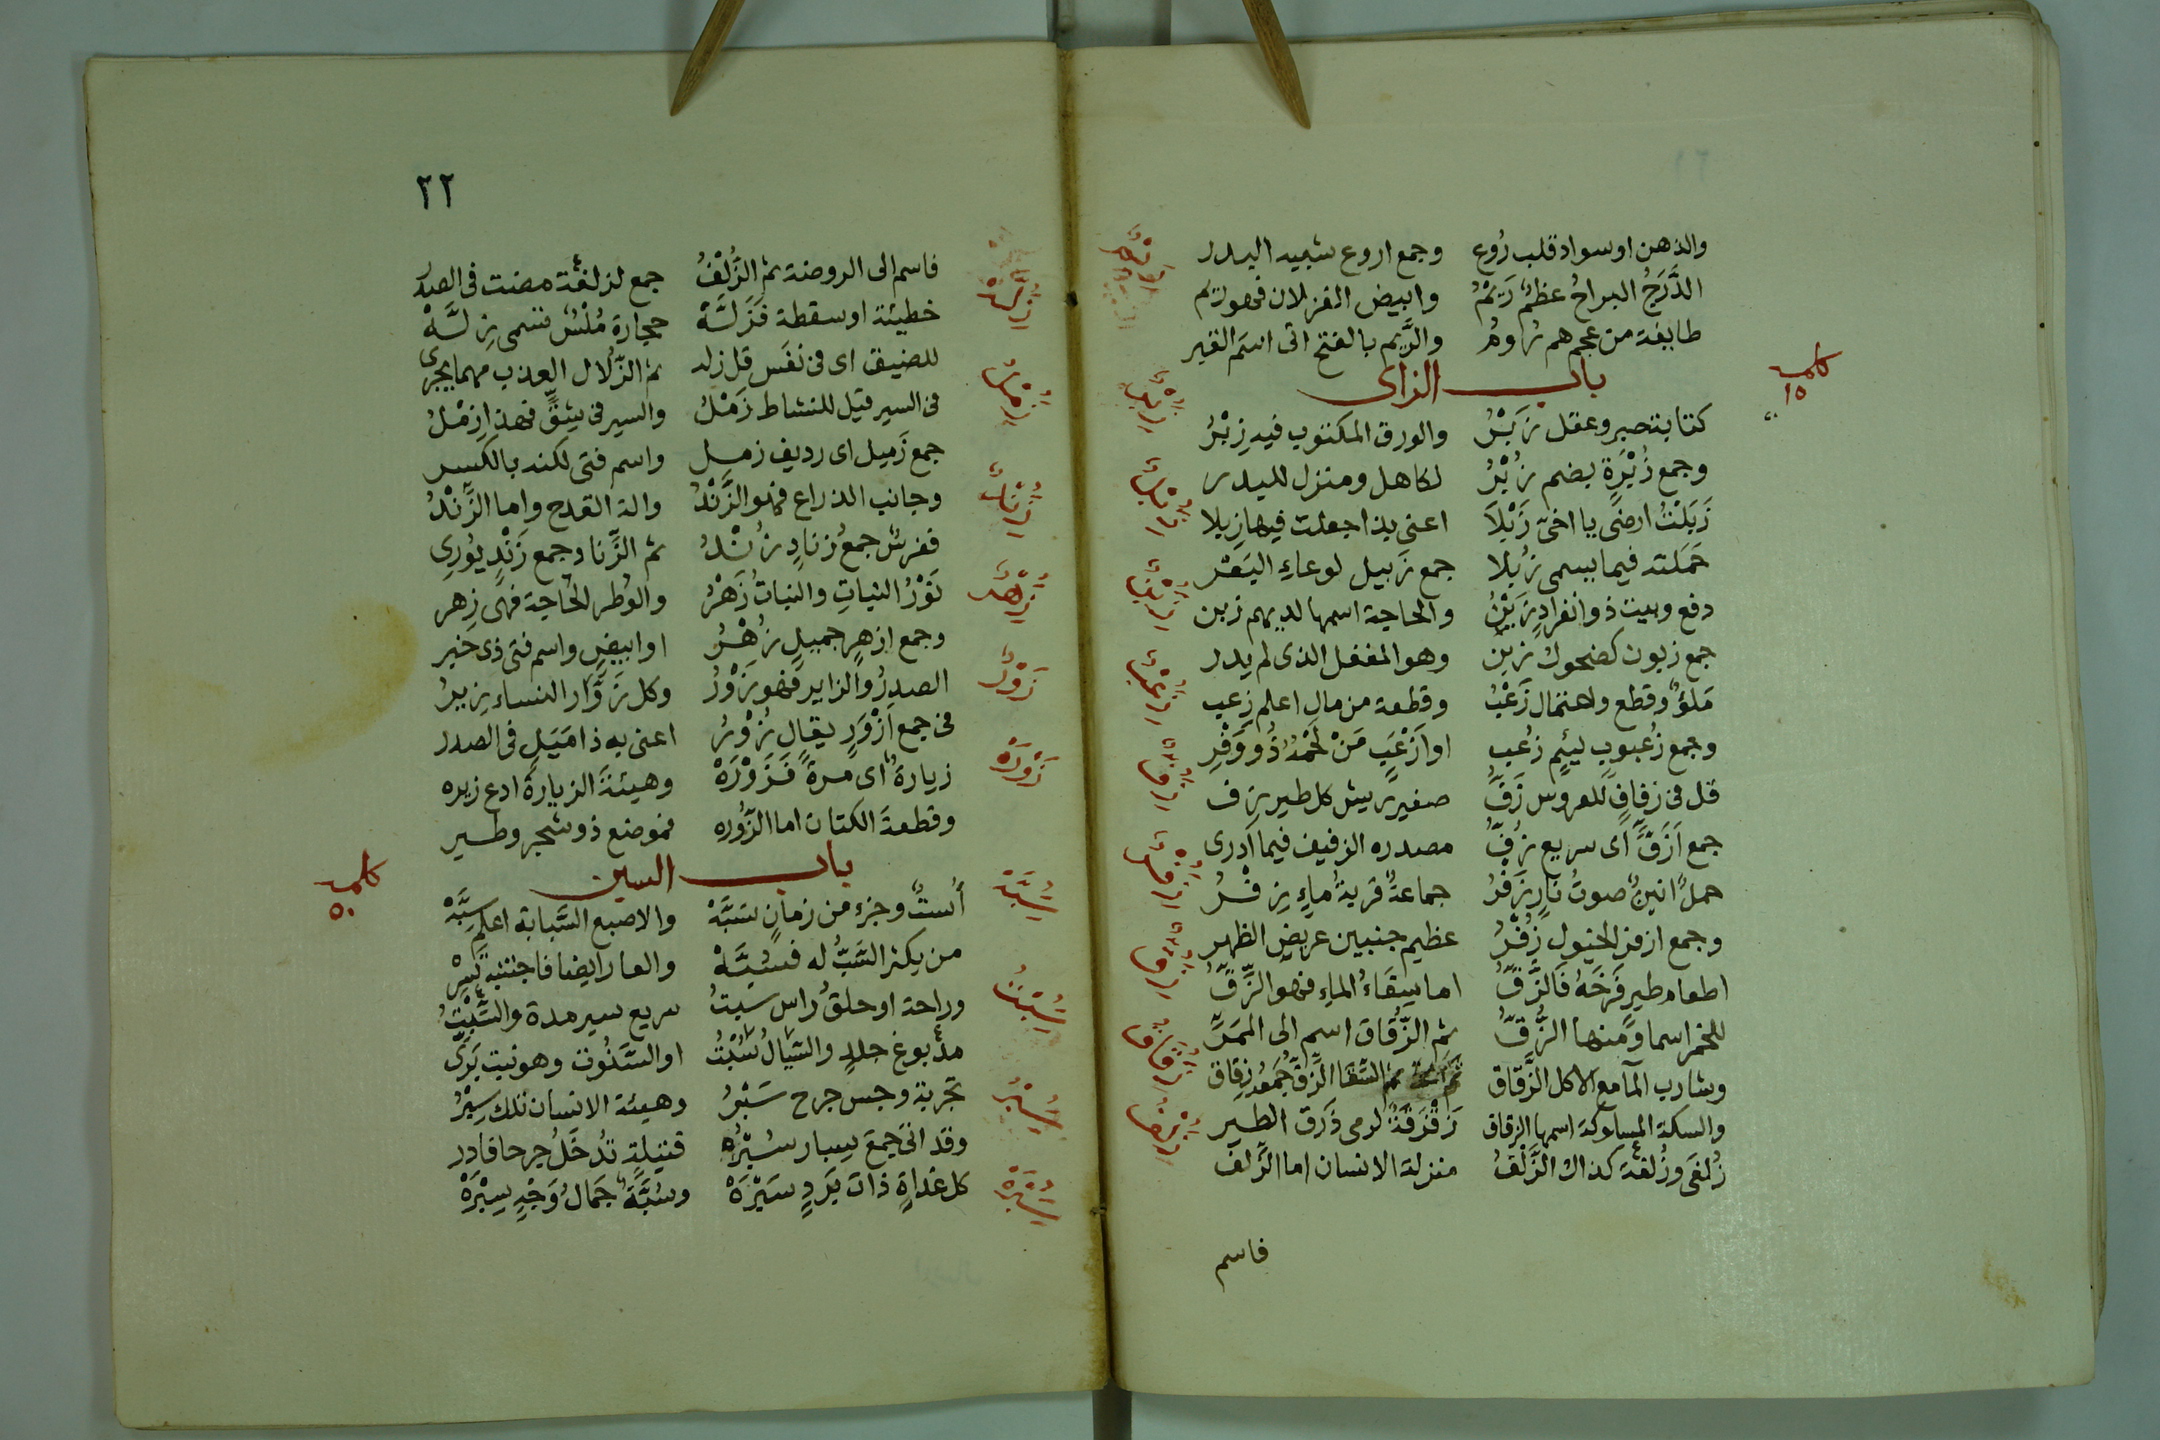 والذهن او سواد قلب رُوع وجمع اروع شبيه البدر
الدَّرَجُ البراحُ عظمٌ رَيْمُ وابيض الغزلان فهو ريم
طايفة من عجم هم رُومُ والرَّيم بالفتح اتى اسم القبر
باب الزاى
كلمه ١٥
كتابة صبر وعقل زَبْرُ والورق المكتوب فيه زِبْرُ
وجمع زُبْرَةٍ بضم زُبْرُ لكاهل ومنزل للبدر
زَبَلْتُ ارضى يا اخىّ زَبْلاَ اعنى بذا جعلت فيها زِبلا
حَمَلته فيما يسمى زُبلا جمع زَبيل لوعاءِ البَعْر
دفع وبيت ذو انفرادٍ زَبْنُ والحاجة اسمها لديهم زبن
جمع زبون كضحوك زبن وهو المغفل الذى لم يدر
مَلؤٌ وقطع واحتمال زَعْبُ وقطعة من مال اعلم زِعب
وجمع زُعبوبٍ ليئيمٍ زُعب او اَزْعَبٍ مَنْ لَحْمُهُ ذُو وَفْرِ
قل فى زفافٍ للعروس زَفُّ صغير ريش كل طير زِف
جمع اَزَفَّ اى سريع زُفُّ مصدره الزفيف فيما ادرى
حملٌ انينٌ صوتُ نارٍ زَفْرُ جماعةٌ قربةُ ماءٍ زِفْرُ
وجمع ازفر الخيول زُفْرُ عظيم جنبين عريض الظهر
اطعام طيرٍ فَرْخَهُ فَالزَّقُّ اما سِقَاءُ الماءِ فهو الزِّقُّ
للخمر اسما ومنها الزُّقُّ ثم الزُّقاق اسم الى الممَرِّ
وشارب المآ مع الاكل الزَّقاق الزِّقُّ جَمْعُهُ زِقاق
والسكة المسلوكة اسمها الزقاق زَقْزَقَةٌ لرمى ذَرق الطير
زُلفَى وزُلفَة كذاك الزَّلْفُ منزلة الانسان اما الزِّلف
فاسم
٢٢
فاسم الى الروضة ثم الزُّلْفُ جمع لزلفة مضت فى الصدر
خطيئة او سقطة فَزَلَّةْ حجارة مُلْسٌ تسمى زِلَّةْ
للضيق اى فى نفَس قل زله ثم الزُّلال العذب مهما يجرى
فى السير قيل للنشاط زَمْلُ والسير فى شِقٍّ فهذا زِمْلُ
جمع زَميل اى رديف زمل واسم فتى لكنه بالكسر
وجانب الذراع فهو الزَّنْدُ والة القدح واما الزِّنْدُ
ففرش جمعُ زنادٍ زُنْدُ ثم الزِّنا وجمع زَنْدٍ يُورِى
نَوْرُ النباتِ والنباتُ زَهْرُ والوُطر الحاجة فهى زِهر
وجمع ازهرٍ جميلٍ زُهْرُ او ابيضٍ واسم فتى ذى خير
الصدِرُ والزاير فهو زَوْرُ وكل زَوَّار النساء زيرُ
فى جمع اَزْوَرٍ يقال زُوْرُ اعنى به ذا مَيَلٍ فى الصدر
زيارةٌ اى مرةً فَزَوْرَةْ وهيئة الزيارة ادع زيره
وقطعة الكتان اما الزُّوره فموضع ذو شجر وطير
باب السين
كلمه ٥٠
أُستٌ وجزء من زمانٍ سَبَّةْ والاصبع السَّبابة اعلم سِبَّةْ
من يكثر السَّبُّ له فسُبَّةْ والعار ايضا فاجتنبه تَسْرِ
وراحة او حلقُ راس سبتُ سريع سير مدة والسِّبْتُ
مدبوغ جلدٍ والسَّيَالُ سُبْتُ او السَّنُوت وهو نبت بَرِّى
تجربة وجس جرح سَبْرُ وهيئة الانسان تلك سِبْرُ
وقد اتى جمعَ سِبار سُبْرُه فتيلةٍ تُدخَلُ جرحا فادر
كل غداةٍ ذات بَردٍ سَبْرَةْ وسُبَّةٌ جَمَالُ وَجْهٍ سِبْرَةْ
زَوْرَةْ